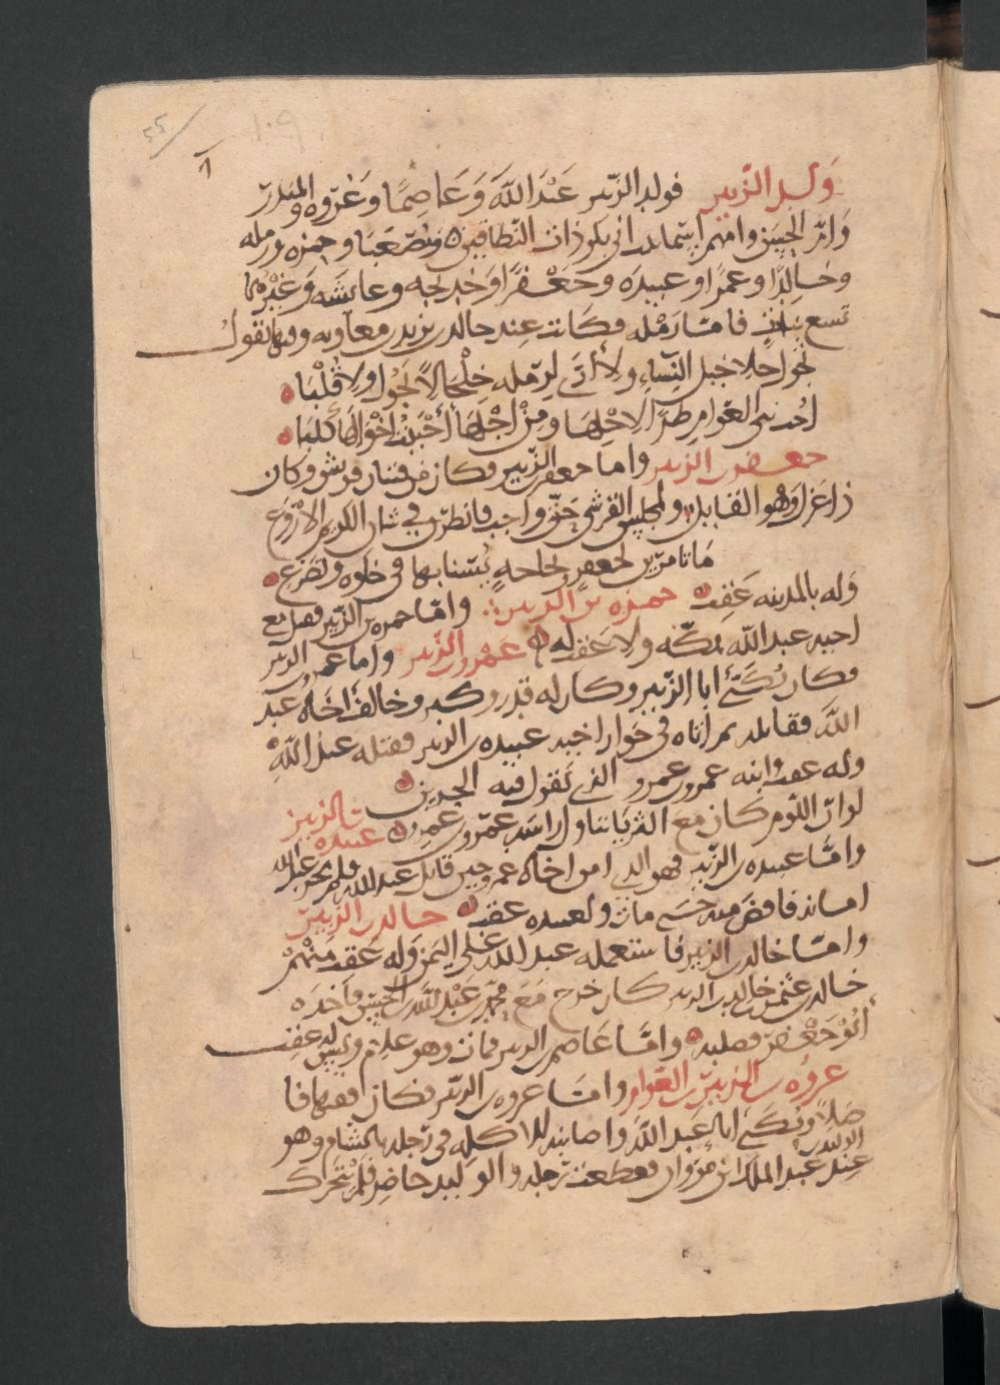 55
١٠٩
ولد الزبير فولد الزبير عَبْدَ اللَّه وَعَاصِمًا وَعُرْوه والمنذر
وَامّ الحَسَن وامهم اسما بنت ابي بكر ذات النّطاقين ومُصْعَبًا وحمزه ورمله
وخَالِدًا وعمرًا وعبيده وجَعْفرًا وَخديجه وعائشه وَغَيْرهما
تسع بنات فامّا رَمْله فكانت عِند خالد بن يزيد بن معاويه وفيها يَقول
تجول خلاخيل النِّسَاءِ ولا أرَى لِرَمله خِلْخَالًا يَجُول ولا قُلْبَا
احبّ بني العَوامِ طرًّا لاجْلِهَا ومنْ اجْلِهَا أحْبَبْتُ اخْوَالهَا كَلْبَا
جعفر بن الزبير واما جعفر بن الزّبير فكان من فتيان قريش وكان
ذا غَزل وهو القائل ولمجلس القرشي حَقّ واجب فانظرن في شان الكريم الاروَع
مَا تامرين لجعفر بحاجه يُسّنا بها في خلوه وتضَرّعِ
وَله بالمدينه عَقِب حمزه بن الزبير وامّا حمزه بن الزبير فقتل مع
اخيه عبد اللّه بمكّه ولا عَقب له عَمْرو بن الزّبير واما عمرو بن الزبير
فكان يُكَنَّى ابا الزّبير وكان له قَدر وكبر وخالف اخَاه عَبد
اللَّه فقاتله ثم اتاه في جوار اخيه عبيده بن الزبير فقتله عبد اللَّهْ
وله عقب وابنه عمرو بن عمرو الذي يَقول فيه الحزين
لو انّ اللؤم كان مع الثريّا تناول راسه عمرو بن عمرو عبيده بن الزبير
وامّا عبيده بن الزّبير فهو الذي امن اخَاه عمرو حين قاتل عبد اللَّه فلم يجز عبد الله
امانه فاقتصّ منه حَتى مات ولعبيده عقب خالد بن الزبير
وامّا خالد بن الزبير فاستعمله عبد اللَّه عَلى اليَمَن وَله عَقب مِنْهُمْ
خالد بن عثمن بن خالد بن الزبير كان خرج مَعَ محمّد بن عَبْد اللّه بن الحَسَن فاخذه
ابُوْ جَعْفَر فصلبه وامّا عَاصم بن الزبير فمات وهو غلام وليس له عقب
عروه بن الزبير بن العَوام وامّا عروه بن الزّبير فكان فقيها فا
ضلًا ويُكَنَّى ابا عَبد اللَّه واصابته الاكله في رجله بالشام وهو
عِند الوليد بن عَبد الملك ابن مَرْوان فقطعت رجله والوليد حاضِر فلم يتحَرك